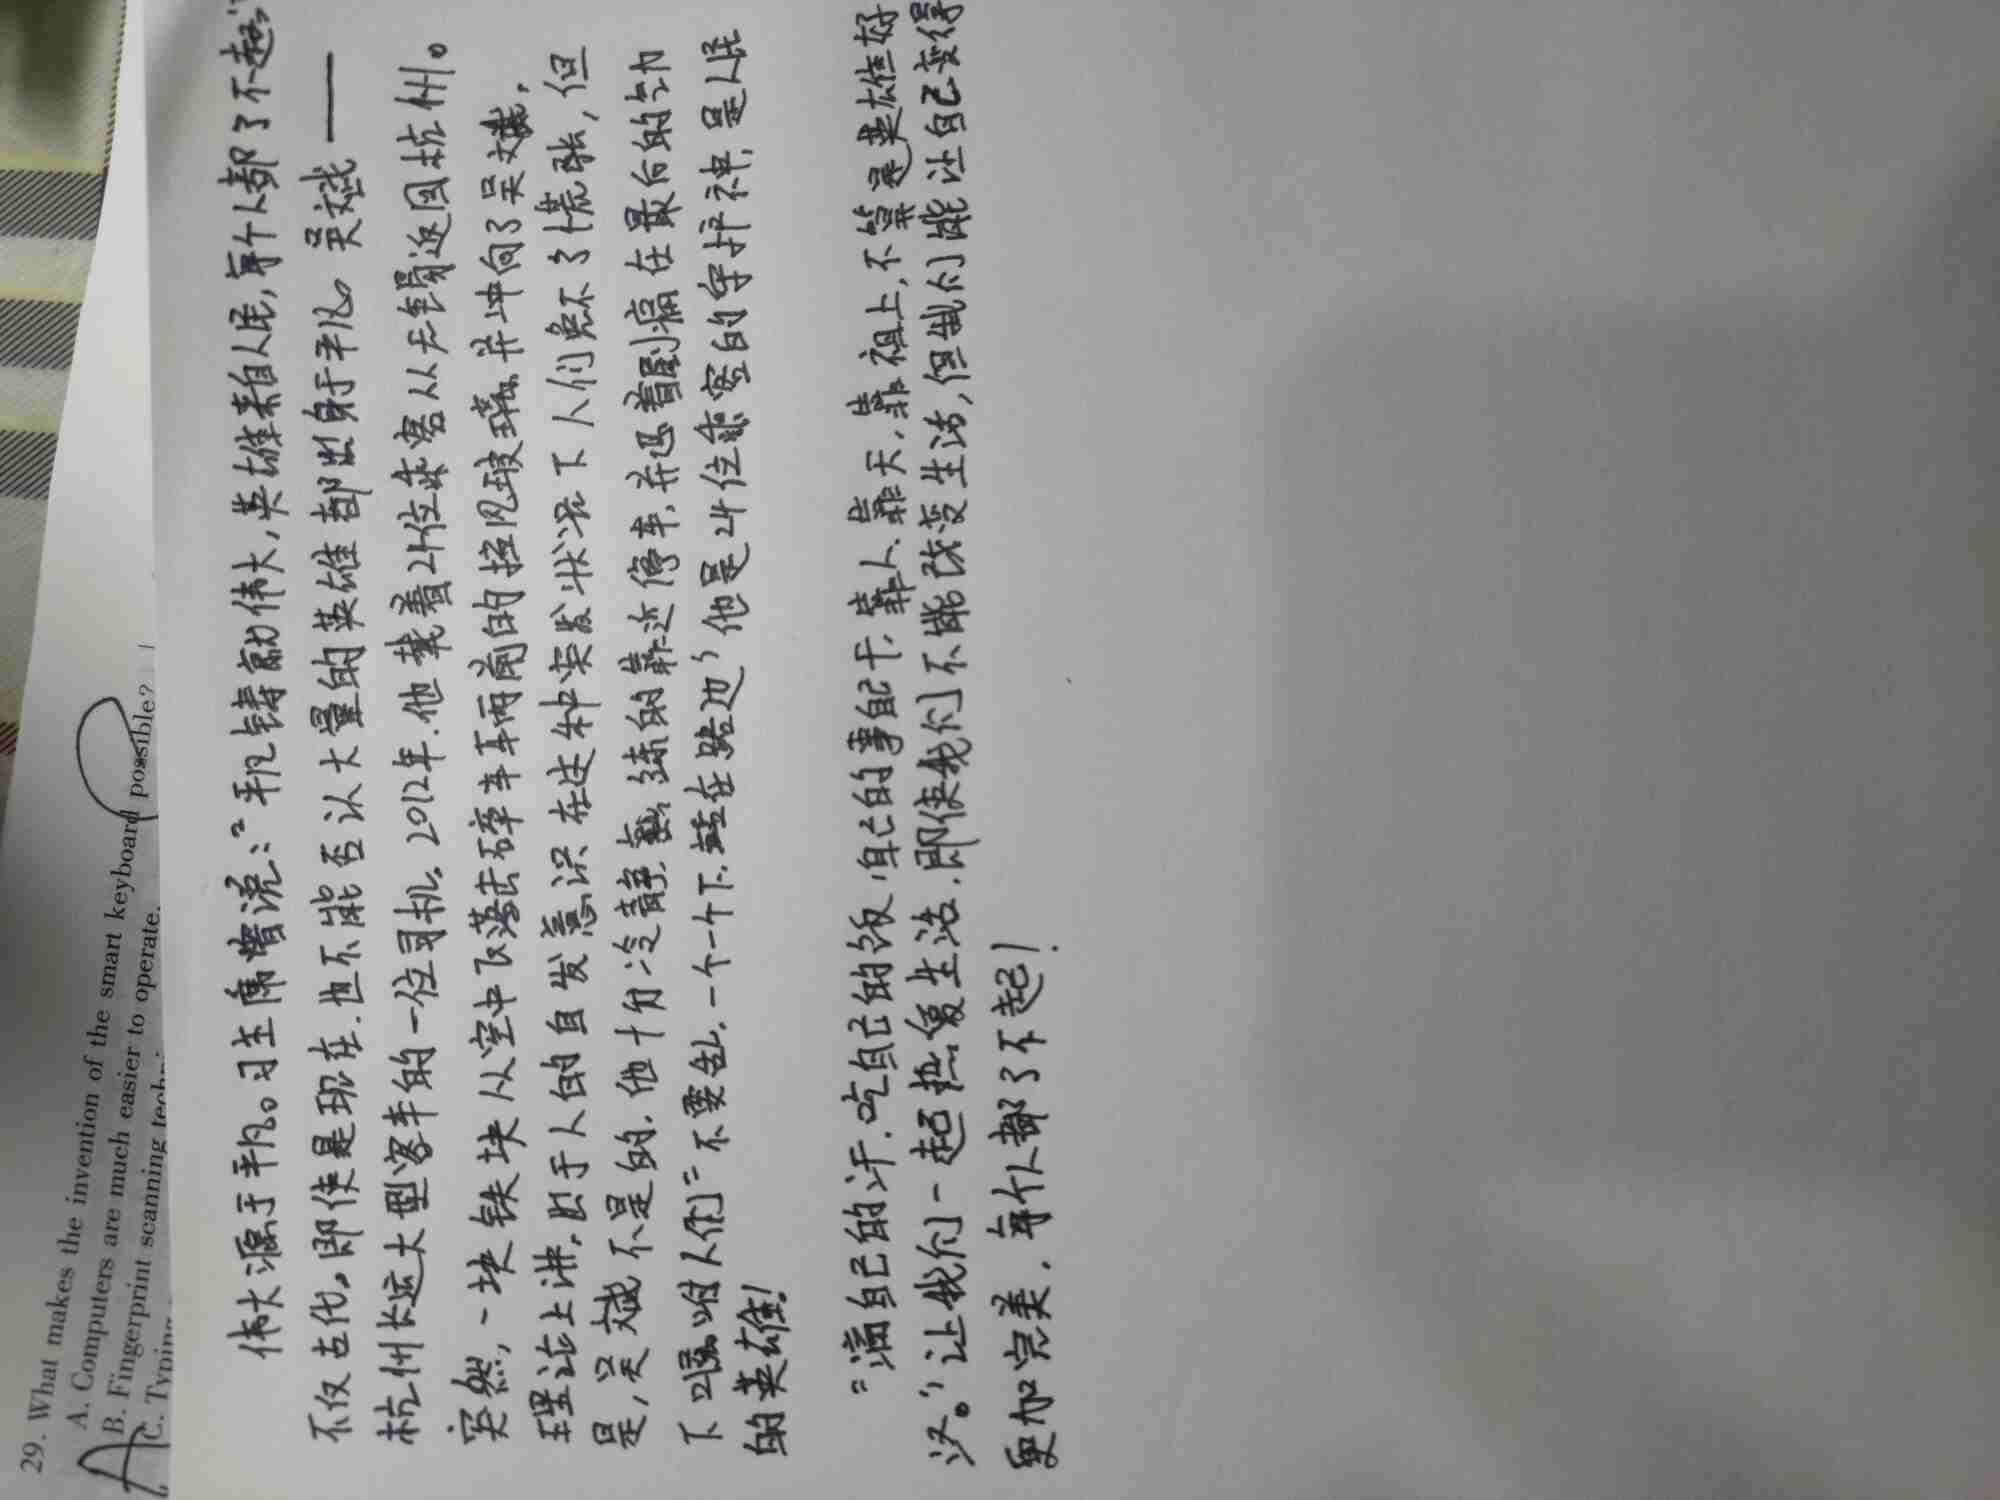 29. What makes the invention of the smart keyboard possible?
A. Computers are much easier to operate.
B. Fingerprint scanning
C. Typing
伟大源于平凡。习主席曾说:“平凡铸就伟大,英雄来自人民,每个人都了不起”
不仅古代,即使是现在,也不能否认大量的英雄都出身于平凡。吴斌——
杭州长运大型客车的一位司机,2012年,他载着24位乘客从无锡返回杭州。
突然,一块铁块从空中飞落击碎车辆前的挡风玻璃,并冲向了吴斌,
理论上讲,出于人的自发意识在这种突发状况下人们免不了慌张,但
是,吴斌不是的,他十分冷静,熟练的靠边停车,并忍着剧痛在最后的气力
下叮嘱人们“不要乱,一个一个下,站在路边”他是24位乘客的守护神,是人民
的英雄!
“滴自己的汗,吃自己的饭,自己的事自己干,靠人,靠天,靠祖上,不算是英雄好
汉。”让我们一起热爱生活,即使我们不能改变生活,但我们能让自己变得
更加完美,每个人都了不起!